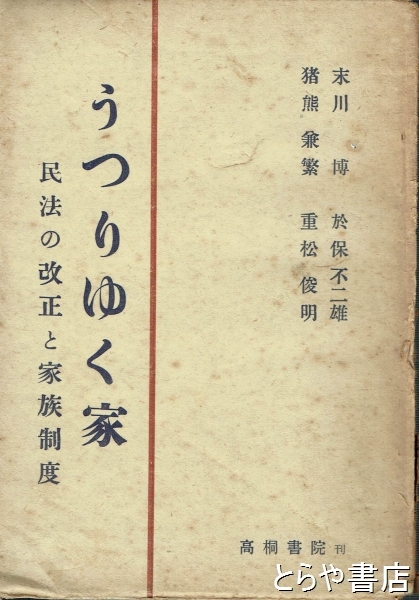 末川博 於保不二雄
猪熊兼繁 重松俊明
うつりゆく家
民法の改正と家族制度
高桐書院 刊
とらや書店